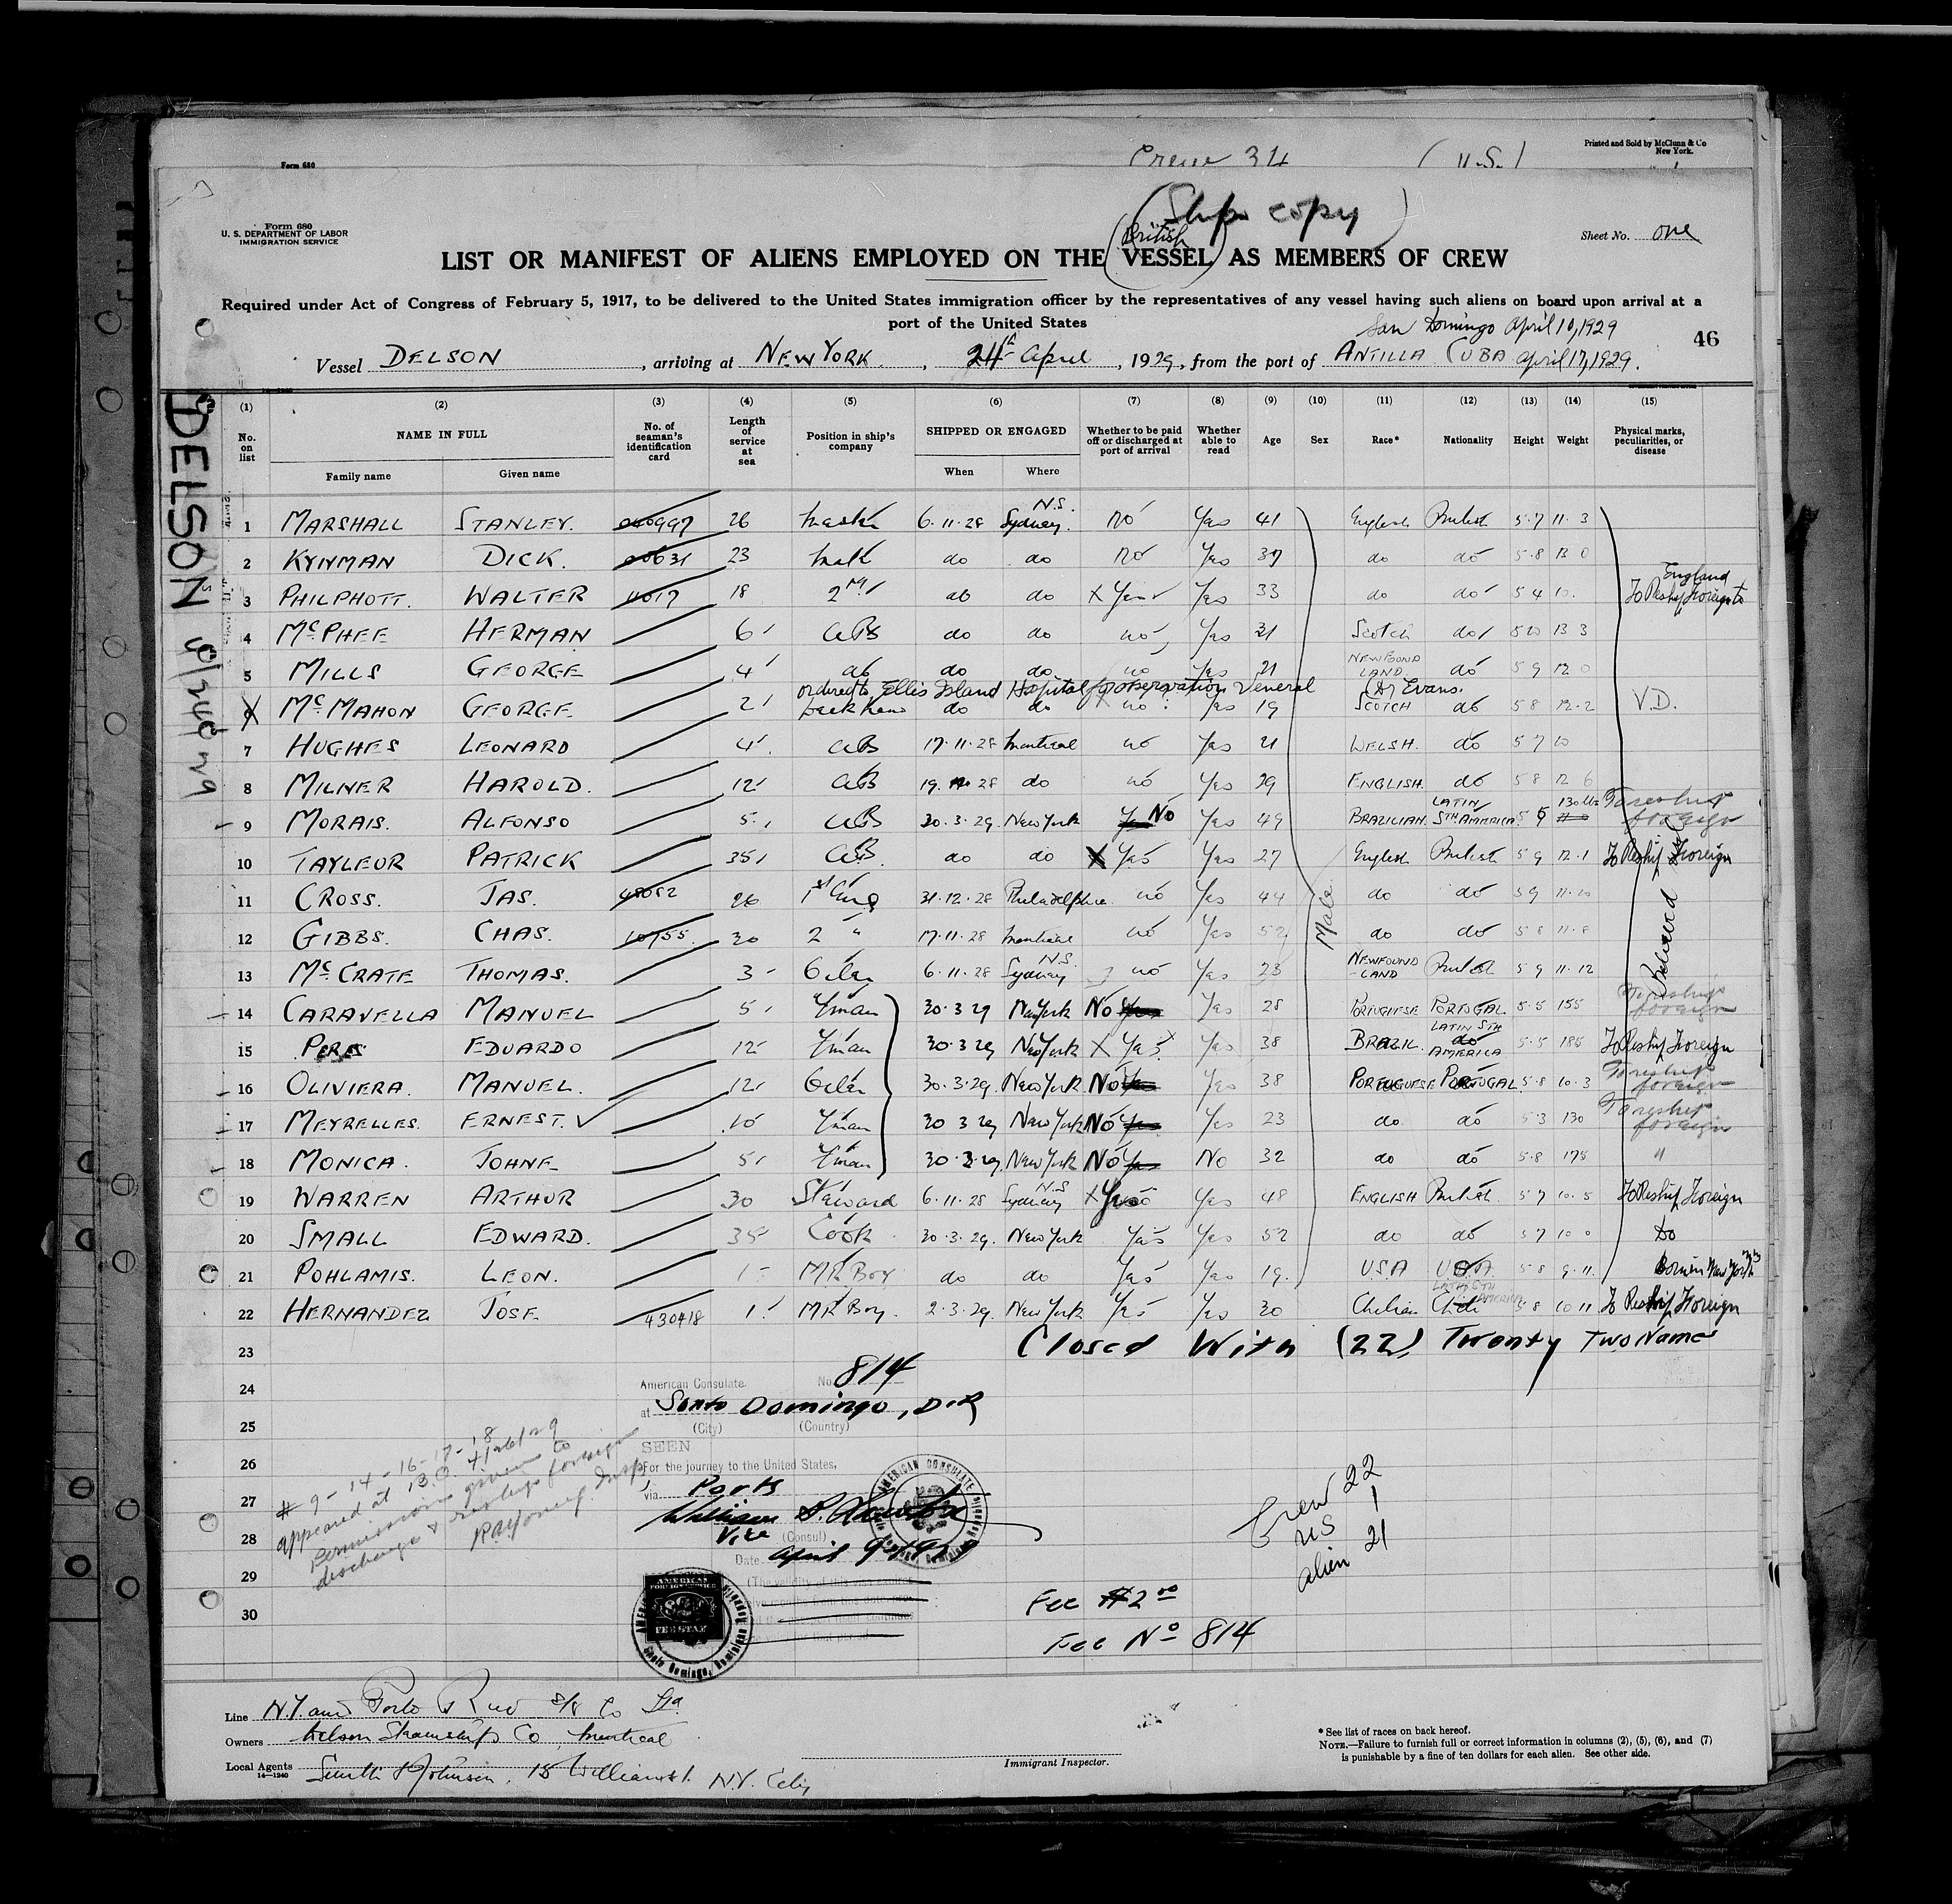 Form 680
Printed and Sold by McClunn & Co
New York.
Crew 34 (U.S.)
Form 680
U. S. DEPARTMENT OF LABOR
IMMIGRATION SERVICE
(Ships copy)
Sheet No. one
(British)
LIST OR MANIFEST OF ALIENS EMPLOYED ON THE VESSEL AS MEMBERS OF CREW
Required under Act of Congress of February 5, 1917, to be delivered to the United States immigration officer by the representatives of any vessel having such aliens on board upon arrival at a
port of the United States
San Domingo April 10, 1929
46
Vessel DELSON, arriving at NEW YORK, 24th April, 1929, from the port of ANTILLA CUBA April 17, 1929.
DELSON
(1) (2) (3) (4) (5) (6) (7) (8) (9) (10) (11) (12) (13) (14) (15)
No. on list
NAME IN FULL
Family name
Given name
No. of seaman's identification card
Length of service at sea
Position in ship's company
SHIPPED OR ENGAGED
When
Where
Whether to be paid off or discharged at port of arrival
Whether able to read
Age
Sex
Race*
Nationality
Height
Weight
Physical marks, peculiarities, or disease
1 MARSHALL STANLEY. 26 Master 6.11.28 Sydney. N.S. no Yes 41 English British 5.7 11.3
2 KYNMAN DICK. 23 Mate do do no Yes 37 do do 5.8 13 0
3 PHILPHOTT. WALTER 11017 18 2nd do do X Yes Yes 33 do do 5 4 10. To Reship Foreign to England
4 McPHEE HERMAN 6 AB do do no Yes 21 Scotch do 5 10 13 3
5 MILLS GEORGE 4 do do do no Yes 21 NEWFOUND LAND do 5 9 12 0
ordered to Ellis Island Hospital for observation Veneral (Dr Evans.
6 McMAHON GEORGE 2 do do no Yes 19 SCOTCH do 5 8 12.2 V.D.
7 HUGHES LEONARD 4 AB 17.11.28 Montreal no Yes 21 WELSH. do 5 7 10
8 MILNER HAROLD. 12 AB 19. 28 do no Yes 29 ENGLISH. do 5 8 12 6
9 MORAIS. ALFONSO 5 AB 30.3.29. New York Yes No Yes 49 BRAZILIAN. LATIN STH AMERICA 5 6 130 lbs To reship foreign
10 TAYLEUR PATRICK 35 AB do do X Yes Yes 27 English British 5 9 12.1 To Reship Foreign
11 CROSS. JAS. 48052 26 1st Eng 31.12.28 Philadelphia no Yes 44 do do 5 9 11.10
12 GIBBS. CHAS. 10755 30 2 " 17.11.28 Montreal no Yes 52 do do 5 8 11.8
13 McCRATE THOMAS. 3 Oiler 6.11.28 Sydney N.S. no Yes 23 NEWFOUND-LAND British 5 9 11.12
14 CARAVELLA MANUEL 5 F/man 30.3 29 New York No Yes Yes 28 PORTUGUESE PORTUGAL 5.5 155 To reship foreign
15 PERES EDUARDO 12 F/man 30.3 29 New York X Yes Yes 38 BRAZIL. do LATIN STH AMERICA 5.5 185 To Reship Foreign
16 OLIVIERA. MANUEL. 12 Oiler 30.3.29. New York No Yes Yes 38 PORTUGUESE PORTUGAL 5.8 10.3 To reship foreign
17 MEYRELLES. ERNEST. 10 F/man 30 3 29 New York No Yes Yes 23 do. do 5.3 130 To reship foreign
18 MONICA. JOHNE 5 F/man 30.3.29 New York No Yes No 32 do do 5.8 175 "
19 WARREN ARTHUR 30 Steward 6.11.28 Sydney N.S X Yes Yes 48 ENGLISH British 5 7 10.5 To Reship Foreign
20 SMALL EDWARD. 35 Cook 30.3.29. New York Yes Yes 52 do do 5 7 10 0 Do
21 POHLAMIS. LEON. 1 MR Boy do do Yes Yes 19. U.S.A U.S.A. 5 8 9.11. Born in New York
22 HERNANDEZ JOSE 430418 1 MR Boy. 2.3.29. New York Yes Yes 30 Chilian Chili LATIN STH AMERICA 5.8 10 11 To Reship Foreign
Male
23 Closed With (22) Twenty Two Names
24
25
26
27
28
29
30
American Consulate. No. 814
at Santo Domingo, D.R
(City) (Country)
SEEN
For the journey to the United States,
via Ports
William
Vice (Consul)
Date April 9-1929
AMERICAN CONSULATE
AMERICAN
FOREIGN SERVICE
FEE STAMP
Santo Domingo, Dominican Republic
# 9 - 14 - 16 - 17 - 18
appeared at B.O. 4/26/29
permission given to
discharge & reship foreign
Insp
Crew 22
US 1
alien 21
Fee $2.00
Fee No 814
Line N.Y. and Porto Rico S/S Co
Owners Delson Steamship Co, Montreal
Local Agents Smith & Johnson, 15 William St. N.Y. City
14—1240
Immigrant Inspector.
* See list of races on back hereof.
NOTE.—Failure to furnish full or correct information in columns (2), (5), (6), and (7)
is punishable by a fine of ten dollars for each alien. See other side.